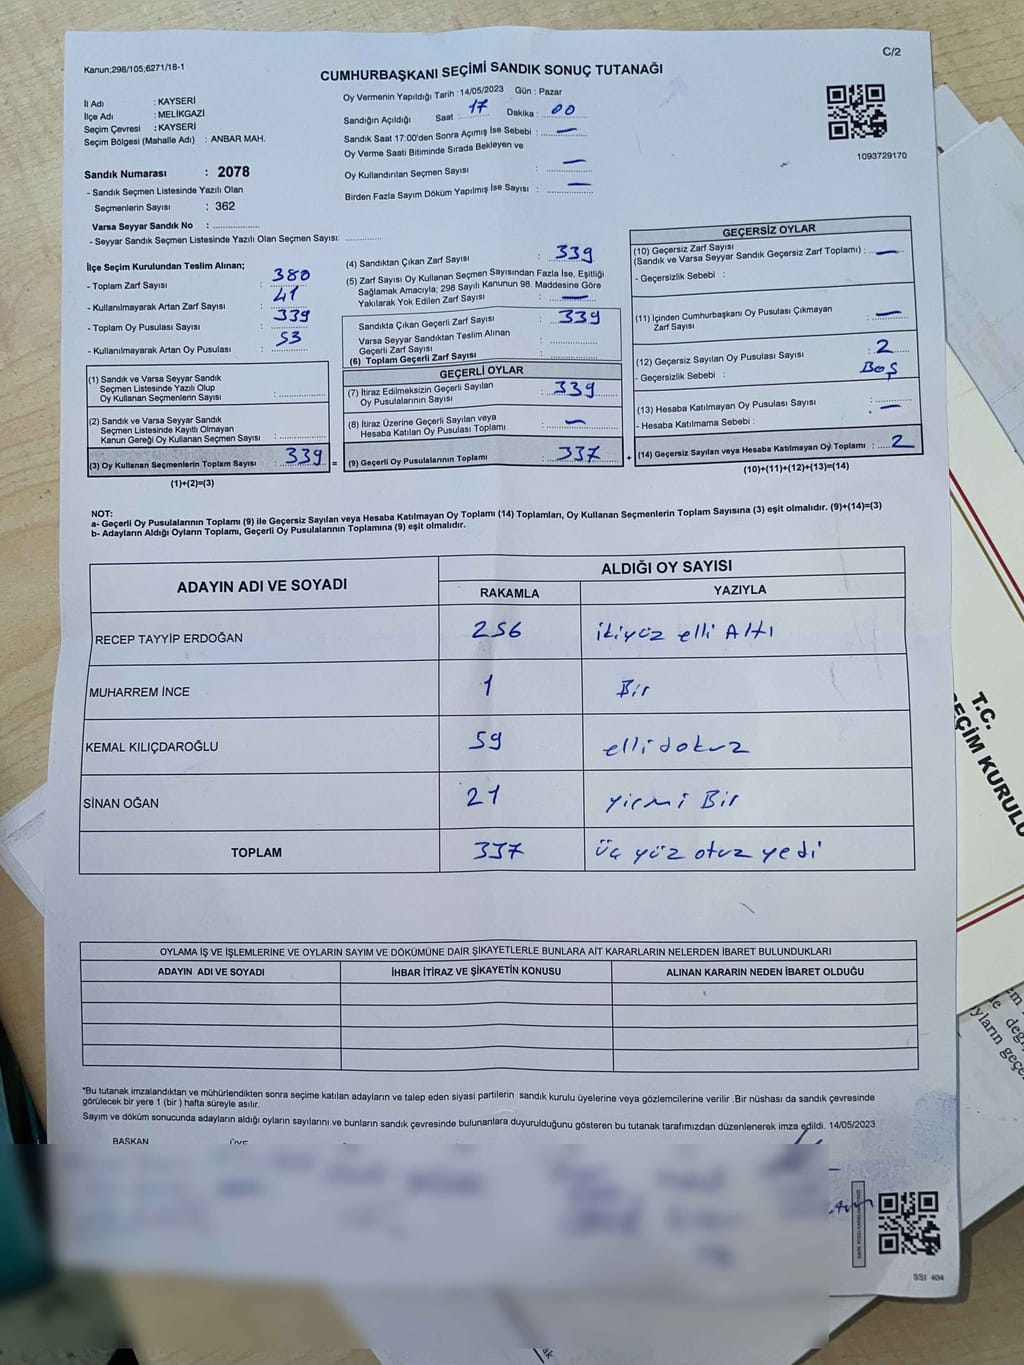 C/2
Kanun;298/105;6271/18-1
CUMHURBAŞKANI SEÇİMİ SANDIK SONUÇ TUTANAĞI
İl Adı : KAYSERİ
İlçe Adı : MELİKGAZİ
Seçim Çevresi : KAYSERİ
Seçim Bölgesi (Mahalle Adı) : ANBAR MAH.
Oy Vermenin Yapıldığı Tarih : 14/05/2023 Gün : Pazar
Sandığın Açıldığı Saat : 17 Dakika : 00
Sandık Saat 17:00'den Sonra Açımış İse Sebebi : —
Oy Verme Saati Bitiminde Sırada Bekleyen ve
Oy Kullandırılan Seçmen Sayısı : —
Birden Fazla Sayım Döküm Yapılmış İse Sayısı : —
1093729170
Sandık Numarası : 2078
- Sandık Seçmen Listesinde Yazılı Olan
Seçmenlerin Sayısı : 362
Varsa Seyyar Sandık No :
- Seyyar Sandık Seçmen Listesinde Yazılı Olan Seçmen Sayısı:
İlçe Seçim Kurulundan Teslim Alınan;
- Toplam Zarf Sayısı : 380
- Kullanılmayarak Artan Zarf Sayısı : 41
- Toplam Oy Pusulası Sayısı : 339
- Kullanılmayarak Artan Oy Pusulası : 53
(1) Sandık ve Varsa Seyyar Sandık
Seçmen Listesinde Yazılı Olup
Oy Kullanan Seçmenlerin Sayısı :
(2) Sandık ve Varsa Seyyar Sandık
Seçmen Listesinde Kayıtlı Olmayan
Kanun Gereği Oy Kullanan Seçmen Sayısı :
(3) Oy Kullanan Seçmenlerin Toplam Sayısı : 339 =
(1)+(2)=(3)
(4) Sandıktan Çıkan Zarf Sayısı : 339
(5) Zarf Sayısı Oy Kullanan Seçmen Sayısından Fazla İse, Eşitliği
Sağlamak Amacıyla; 298 Sayılı Kanunun 98. Maddesine Göre
Yakılarak Yok Edilen Zarf Sayısı : —
Sandıkta Çıkan Geçerli Zarf Sayısı : 339
Varsa Seyyar Sandıktan Teslim Alınan
Geçerli Zarf Sayısı :
(6) Toplam Geçerli Zarf Sayısı :
GEÇERLİ OYLAR
(7) İtiraz Edilmeksizin Geçerli Sayılan
Oy Pusulalarının Sayısı : 339
(8) İtiraz Üzerine Geçerli Sayılan veya
Hesaba Katılan Oy Pusulası Toplamı : —
(9) Geçerli Oy Pusulalarının Toplamı : 337 +
GEÇERSİZ OYLAR
(10) Geçersiz Zarf Sayısı
(Sandık ve Varsa Seyyar Sandık Geçersiz Zarf Toplamı) : —
- Geçersizlik Sebebi :
(11) İçinden Cumhurbaşkanı Oy Pusulası Çıkmayan
Zarf Sayısı : —
(12) Geçersiz Sayılan Oy Pusulası Sayısı : 2
- Geçersizlik Sebebi : Boş
(13) Hesaba Katılmayan Oy Pusulası Sayısı : —
- Hesaba Katılmama Sebebi :
(14) Geçersiz Sayılan veya Hesaba Katılmayan Oy Toplamı : 2
(10)+(11)+(12)+(13)=(14)
NOT:
a- Geçerli Oy Pusulalarının Toplamı (9) ile Geçersiz Sayılan veya Hesaba Katılmayan Oy Toplamı (14) Toplamları, Oy Kullanan Seçmenlerin Toplam Sayısına (3) eşit olmalıdır. (9)+(14)=(3)
b- Adayların Aldığı Oyların Toplamı, Geçerli Oy Pusulalarının Toplamına (9) eşit olmalıdır.
ADAYIN ADI VE SOYADI ALDIĞI OY SAYISI
RAKAMLA YAZIYLA
RECEP TAYYİP ERDOĞAN 256 ikiyüz elli Altı
MUHARREM İNCE 1 Bir
KEMAL KILIÇDAROĞLU 59 elli dokuz
SİNAN OĞAN 21 yirmi Bir
TOPLAM 337 üç yüz otuz yedi
OYLAMA İŞ VE İŞLEMLERİNE VE OYLARIN SAYIM VE DÖKÜMÜNE DAİR ŞİKAYETLERLE BUNLARA AİT KARARLARIN NELERDEN İBARET BULUNDUKLARI
ADAYIN ADI VE SOYADI İHBAR İTİRAZ VE ŞİKAYETİN KONUSU ALINAN KARARIN NEDEN İBARET OLDUĞU
*Bu tutanak imzalandıktan ve mühürlendikten sonra seçime katılan adayların ve talep eden siyasi partilerin sandık kurulu üyelerine veya gözlemcilerine verilir .Bir nüshası da sandık çevresinde
görülecek bir yere 1 (bir ) hafta süreyle asılır.
Sayım ve döküm sonucunda adayların aldığı oyların sayılarını ve bunların sandık çevresinde bulunanlara duyurulduğunu gösteren bu tutanak tarafımızdan düzenlenerek imza edildi. 14/05/2023
BAŞKAN ÜYE
SSI 40A
T.C.
SEÇİM KURULU
yların geçe